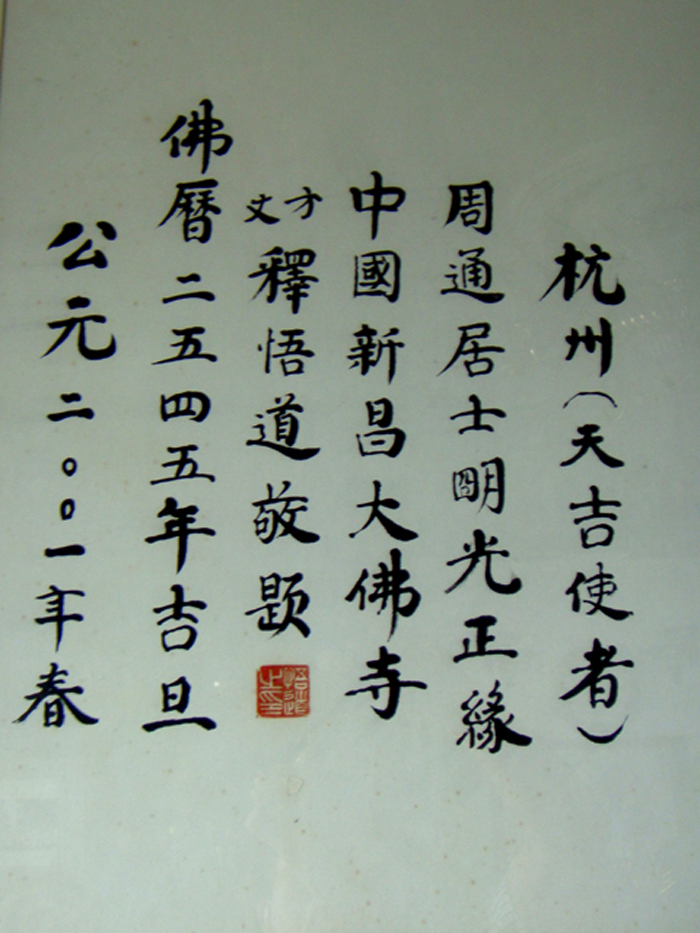 杭州(天吉使者)
周通居士明光正緣
中國新昌大佛寺
方丈釋悟道敬题
佛曆二五四五年吉旦
公元二〇〇一年春